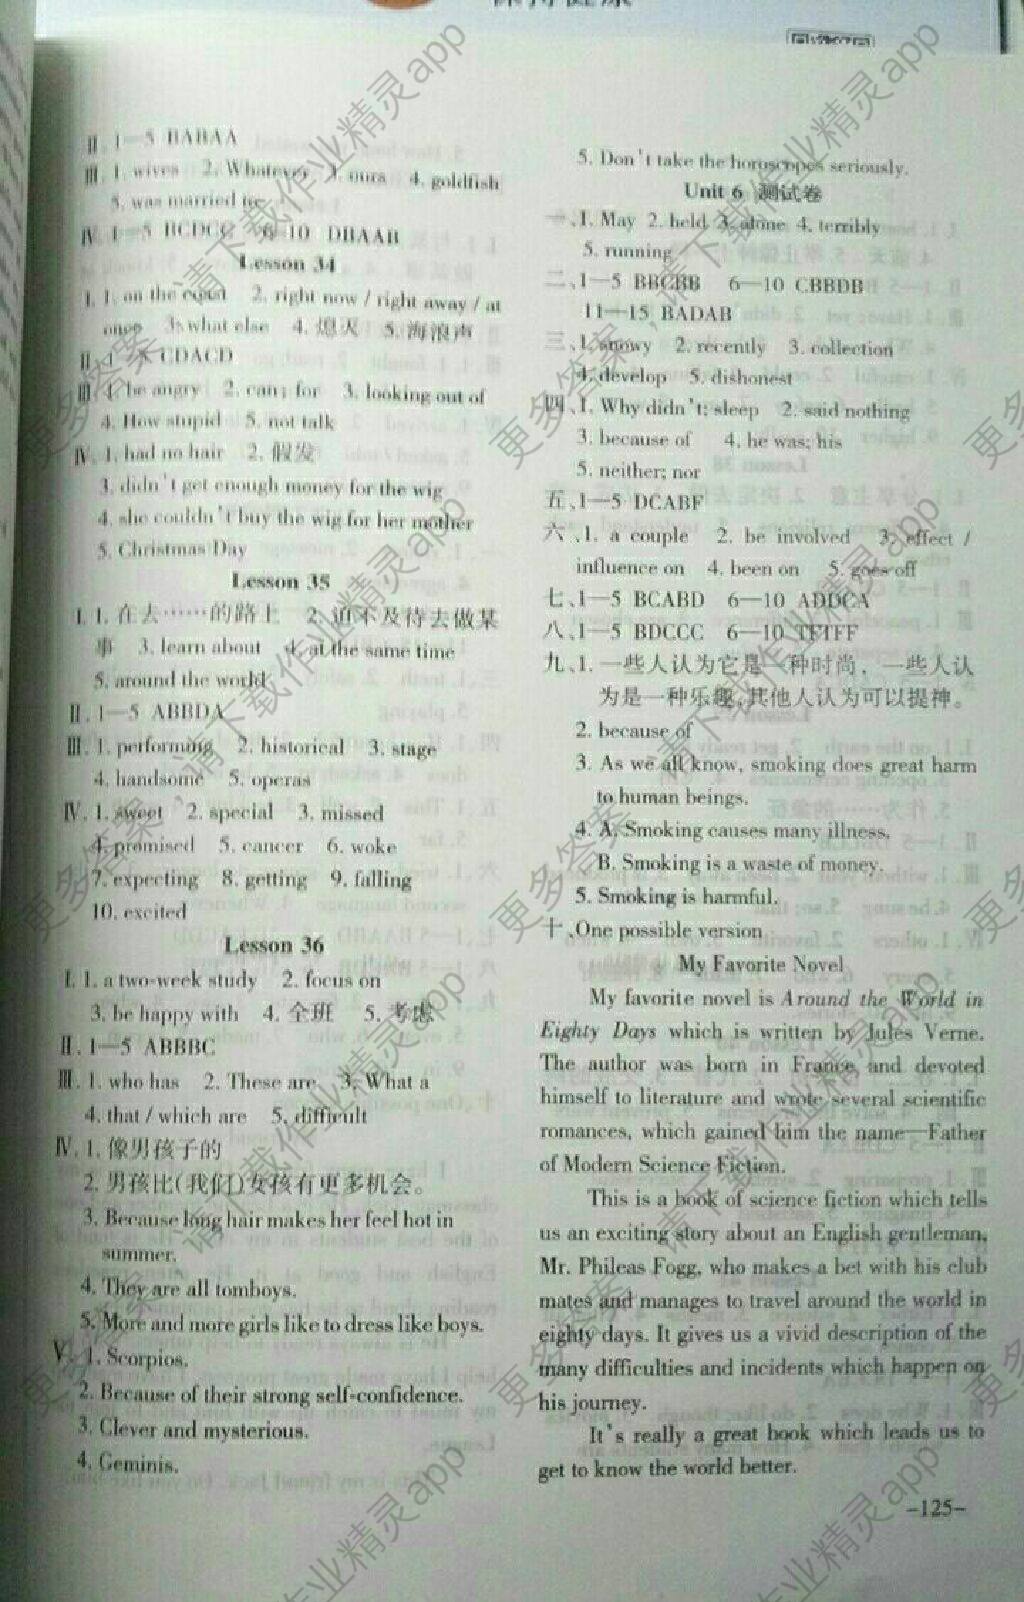 Ⅱ. 1—5 BABAA
Ⅲ. 1. wives 2. Whatever 3. ours 4. goldfish
5. was married to
Ⅳ. 1—5 BCDCC 6—10 DBAAB
Lesson 34
Ⅰ. 1. on the coast 2. right now / right away / at
once 3. what else 4. 熄灭 5. 海浪声
Ⅱ. 1—5 CDACD
Ⅲ. 1. be angry 2. can; for 3. looking out of
4. How stupid 5. not talk
Ⅳ. 1. had no hair 2. 假发
3. didn't get enough money for the wig
4. she couldn't buy the wig for her mother
5. Christmas Day
Lesson 35
Ⅰ. 1. 在去……的路上 2. 迫不及待去做某
事 3. learn about 4. at the same time
5. around the world
Ⅱ. 1—5 ABBDA
Ⅲ. 1. performing 2. historical 3. stage
4. handsome 5. operas
Ⅳ. 1. sweet 2. special 3. missed
4. promised 5. cancer 6. woke
7. expecting 8. getting 9. falling
10. excited
Lesson 36
Ⅰ. 1. a two-week study 2. focus on
3. be happy with 4. 全班 5. 考虑
Ⅱ. 1—5 ABBBC
Ⅲ. 1. who has 2. These are 3. What a
4. that / which are 5. difficult
Ⅳ. 1. 像男孩子的
2. 男孩比(我们)女孩有更多机会。
3. Because long hair makes her feel hot in
summer.
4. They are all tomboys.
5. More and more girls like to dress like boys.
Ⅴ. 1. Scorpios.
2. Because of their strong self-confidence.
3. Clever and mysterious.
4. Geminis.
5. Don't take the horoscopes seriously.
Unit 6 测试卷
一、1. May 2. held 3. alone 4. terribly
5. running
二、1—5 BBCBB 6—10 CBBDB
11—15 BADAB
三、1. snowy 2. recently 3. collection
4. develop 5. dishonest
四、1. Why didn't; sleep 2. said nothing
3. because of 4. he was; his
5. neither; nor
五、1—5 DCABF
六、1. a couple 2. be involved 3. effect /
influence on 4. been on 5. goes off
七、1—5 BCABD 6—10 ADDCA
八、1—5 BDCCC 6—10 TFTFF
九、1. 一些人认为它是一种时尚，一些人认
为是一种乐趣，其他人认为可以提神。
2. because of
3. As we all know, smoking does great harm
to human beings.
4. A. Smoking causes many illness.
B. Smoking is a waste of money.
5. Smoking is harmful.
十、One possible version
My Favorite Novel
My favorite novel is Around the World in
Eighty Days which is written by Jules Verne.
The author was born in France and devoted
himself to literature and wrote several scientific
romances, which gained him the name—Father
of Modern Science Fiction.
This is a book of science fiction which tells
us an exciting story about an English gentleman,
Mr. Phileas Fogg, who makes a bet with his club
mates and manages to travel around the world in
eighty days. It gives us a vivid description of the
many difficulties and incidents which happen on
his journey.
It's really a great book which leads us to
get to know the world better.
-125-
更多答案，请下载作业精灵app